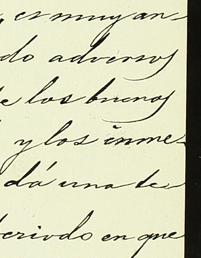 , es muy an-
do adversos
e los buenos
y los inme-
dá una te-
periodo en que